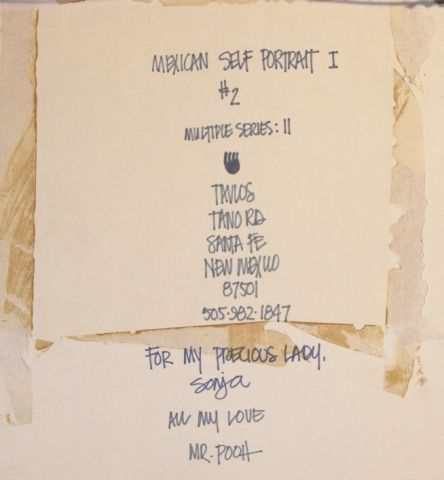 MEXICAN SELF PORTRAIT I
#2
MULTIPLE SERIES: 11
TAVLOS
TANO RD
SANTA FE
NEW MEXICO
87501
505-982-1847
FOR MY PRECIOUS LADY,
Sonja
ALL MY LOVE
MR. POOH